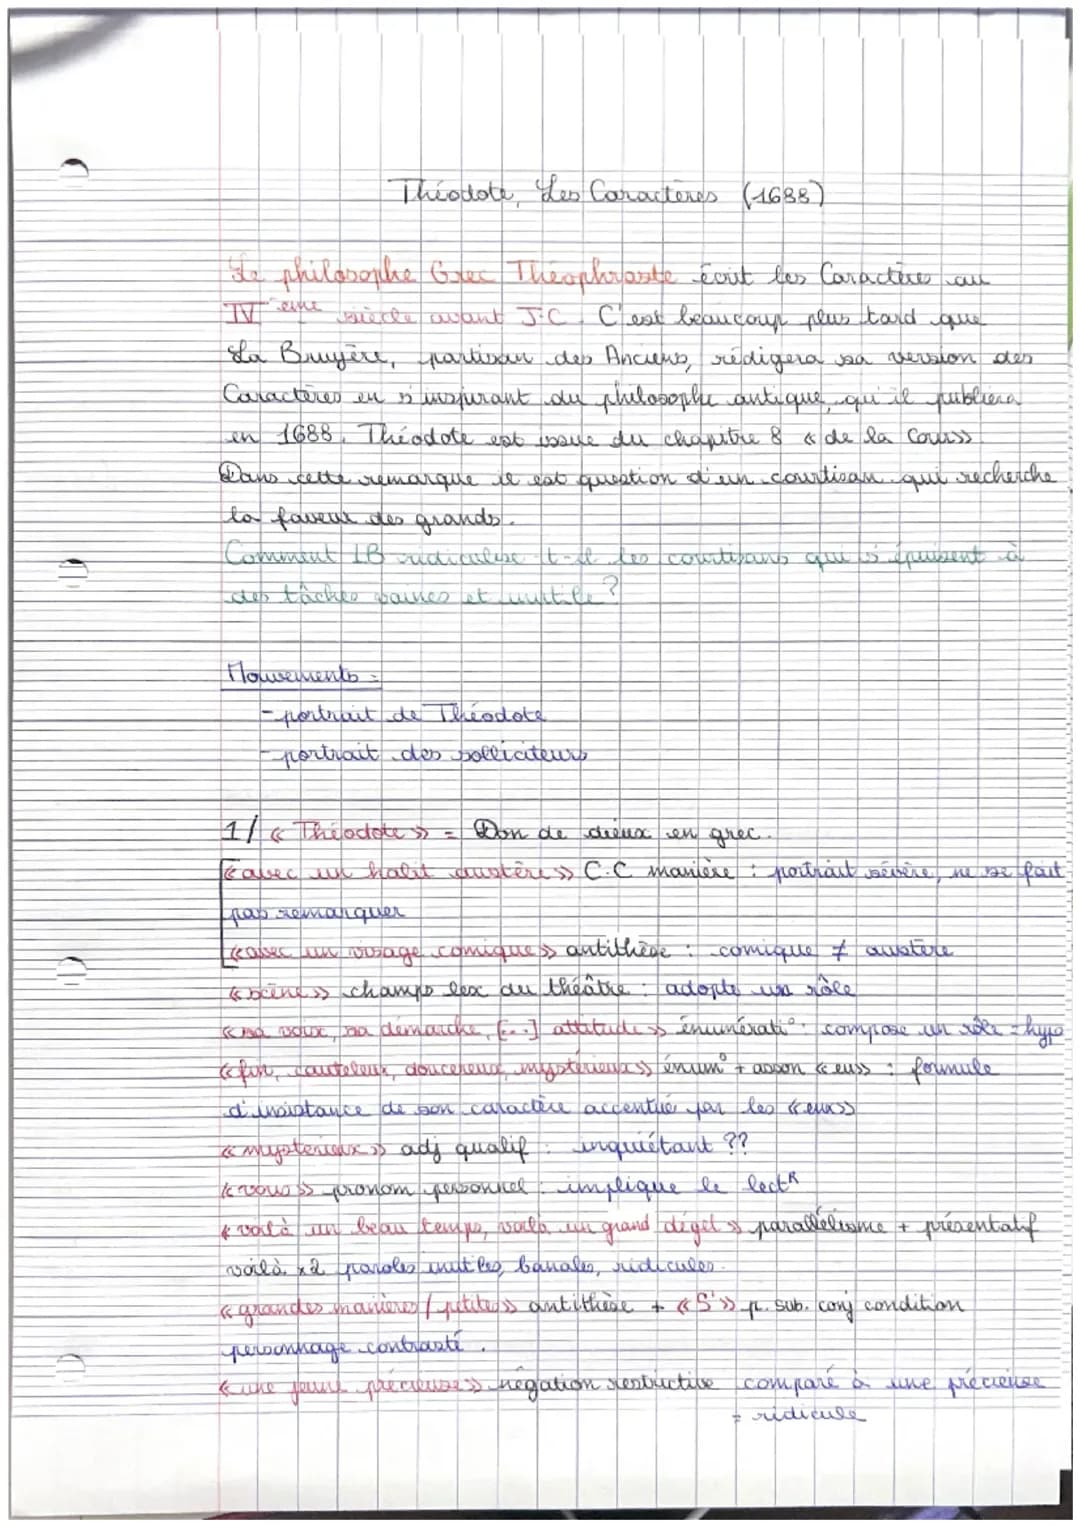 Théodote, Les Caractères (1688)
Le philosophe Grec Théophraste écrit les Caractères au
IV ème siècle avant J.C. C'est beaucoup plus tard que
La Bruyère, partisan des Anciens, rédigera sa version des
Caractères en s'inspirant du philosophe antique, qu'il publiera
en 1688. Théodote est issue du chapitre 8 « de la Cour»
Dans cette remarque il est question d'un courtisan qui recherche
la faveur des grands.
Comment LB ridiculise-t-il les courtisans qui s'épuisent à
des tâches vaines et inutile ?
Mouvements :
- portrait de Théodote
- portrait des solliciteurs
1/ « Théodote » = Don de dieux en grec.
« avec un habit austère » C.C manière : portrait sévère, ne se fait
pas remarquer
« avec un visage comique » antithèse : comique ≠ austère
« scène » champs lex du théâtre : adopte un rôle
« sa voix, sa démarche, [...] attitude » énumérati° : compose un rôle = hypo
« fin, cauteleux, doucereux, mystérieux » énum° + asson « eux » : formule
d'insistance de son caractère accentué par les « eux »
« mystérieux » adj qualif : inquiétant ??
« vous » pronom personnel : implique le lectR
« voilà un beau temps, voilà un grand dégel » parallélisme + présentatif
voilà x2 paroles inutiles, banales, ridicules.
« grandes manières / petites » antithèse + « S' » p. sub. conj condition
personnage contrasté.
« une jeune précieuse » négation restrictive comparé à une précieuse
= ridicule